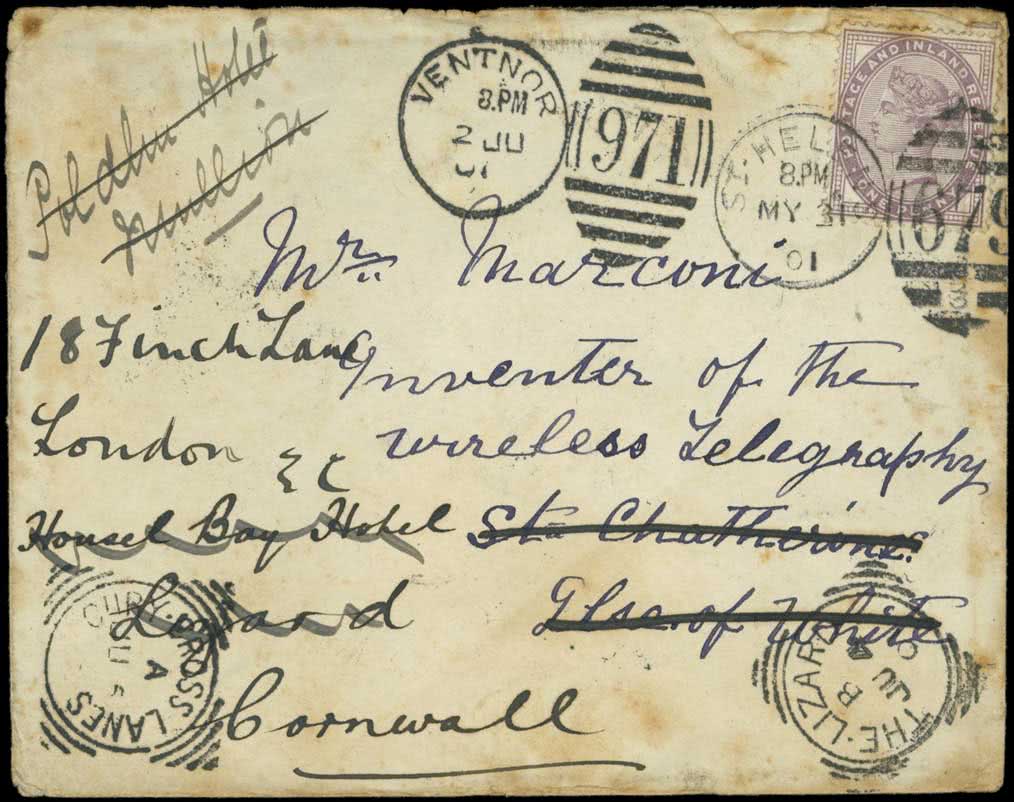 Poldhu Hotel
Mullion
VENTNOR
8.PM
2 JU
01
971
ST. HEL
8.PM
MY 31
01
679
POSTAGE AND INLAND REVENUE
Mr. Marconi
18 Finch Lane
Inventer of the
London E C
wireless Telegraphy
Housel Bay Hotel
St. Chatherines
Lizard
Ilse of White
Cornwall
CURY.CROSS LANES
A
JU
THE.LIZARD
B
JU